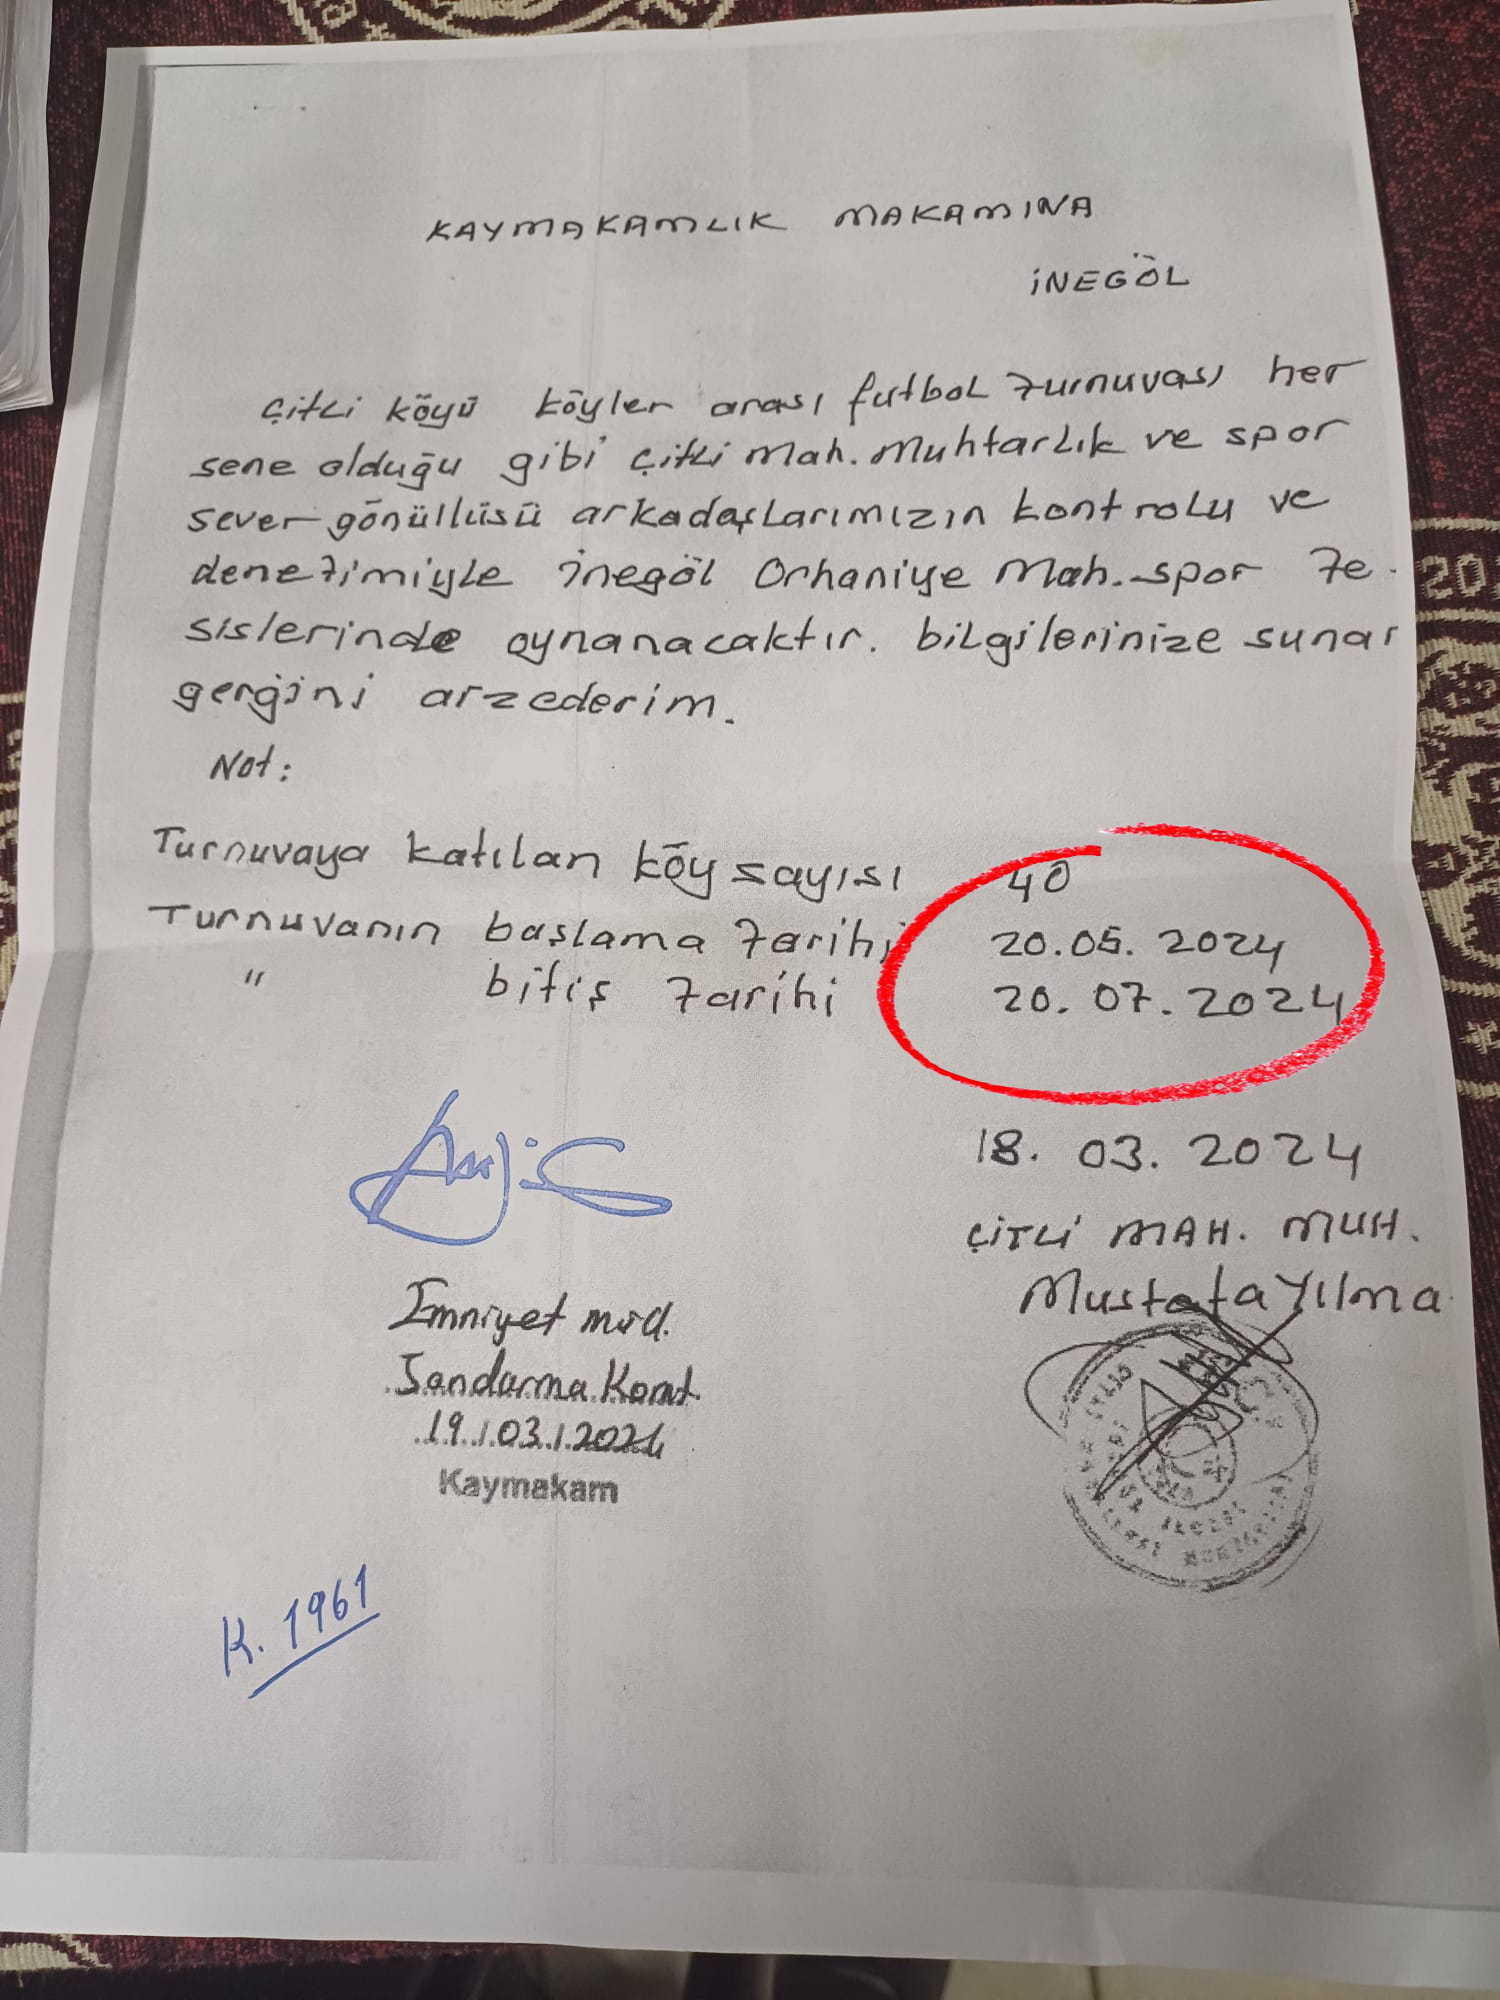 KAYMAKAMLIK MAKAMINA
İNEGÖL
Çitli köyü köyler arası futbol turnuvası her
sene olduğu gibi Çitli Mah. Muhtarlık ve spor
sever gönüllüsü arkadaşlarımızın kontrolu ve
denetimiyle İnegöl Orhaniye Mah. spor Te-
sislerinde oynanacaktır. bilgilerinize sunar
gerğini arzederim.
Not:
Turnuvaya katılan köy sayısı 40
Turnuvanın başlama tarihi 20.05.2024
" bitiş tarihi 20.07.2024
18.03.2024
ÇİTLİ MAH. MUH.
Mustafa Yılma
Emniyet müd.
Jandarma Komt.
19.03.2024
Kaymakam
K. 1961